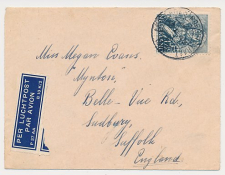 Miss Megan Evans.
"Mynton"
Belle-Vue Rd,
Sudbury,
Suffolk
England.
PER LUCHTPOST
PAR AVION